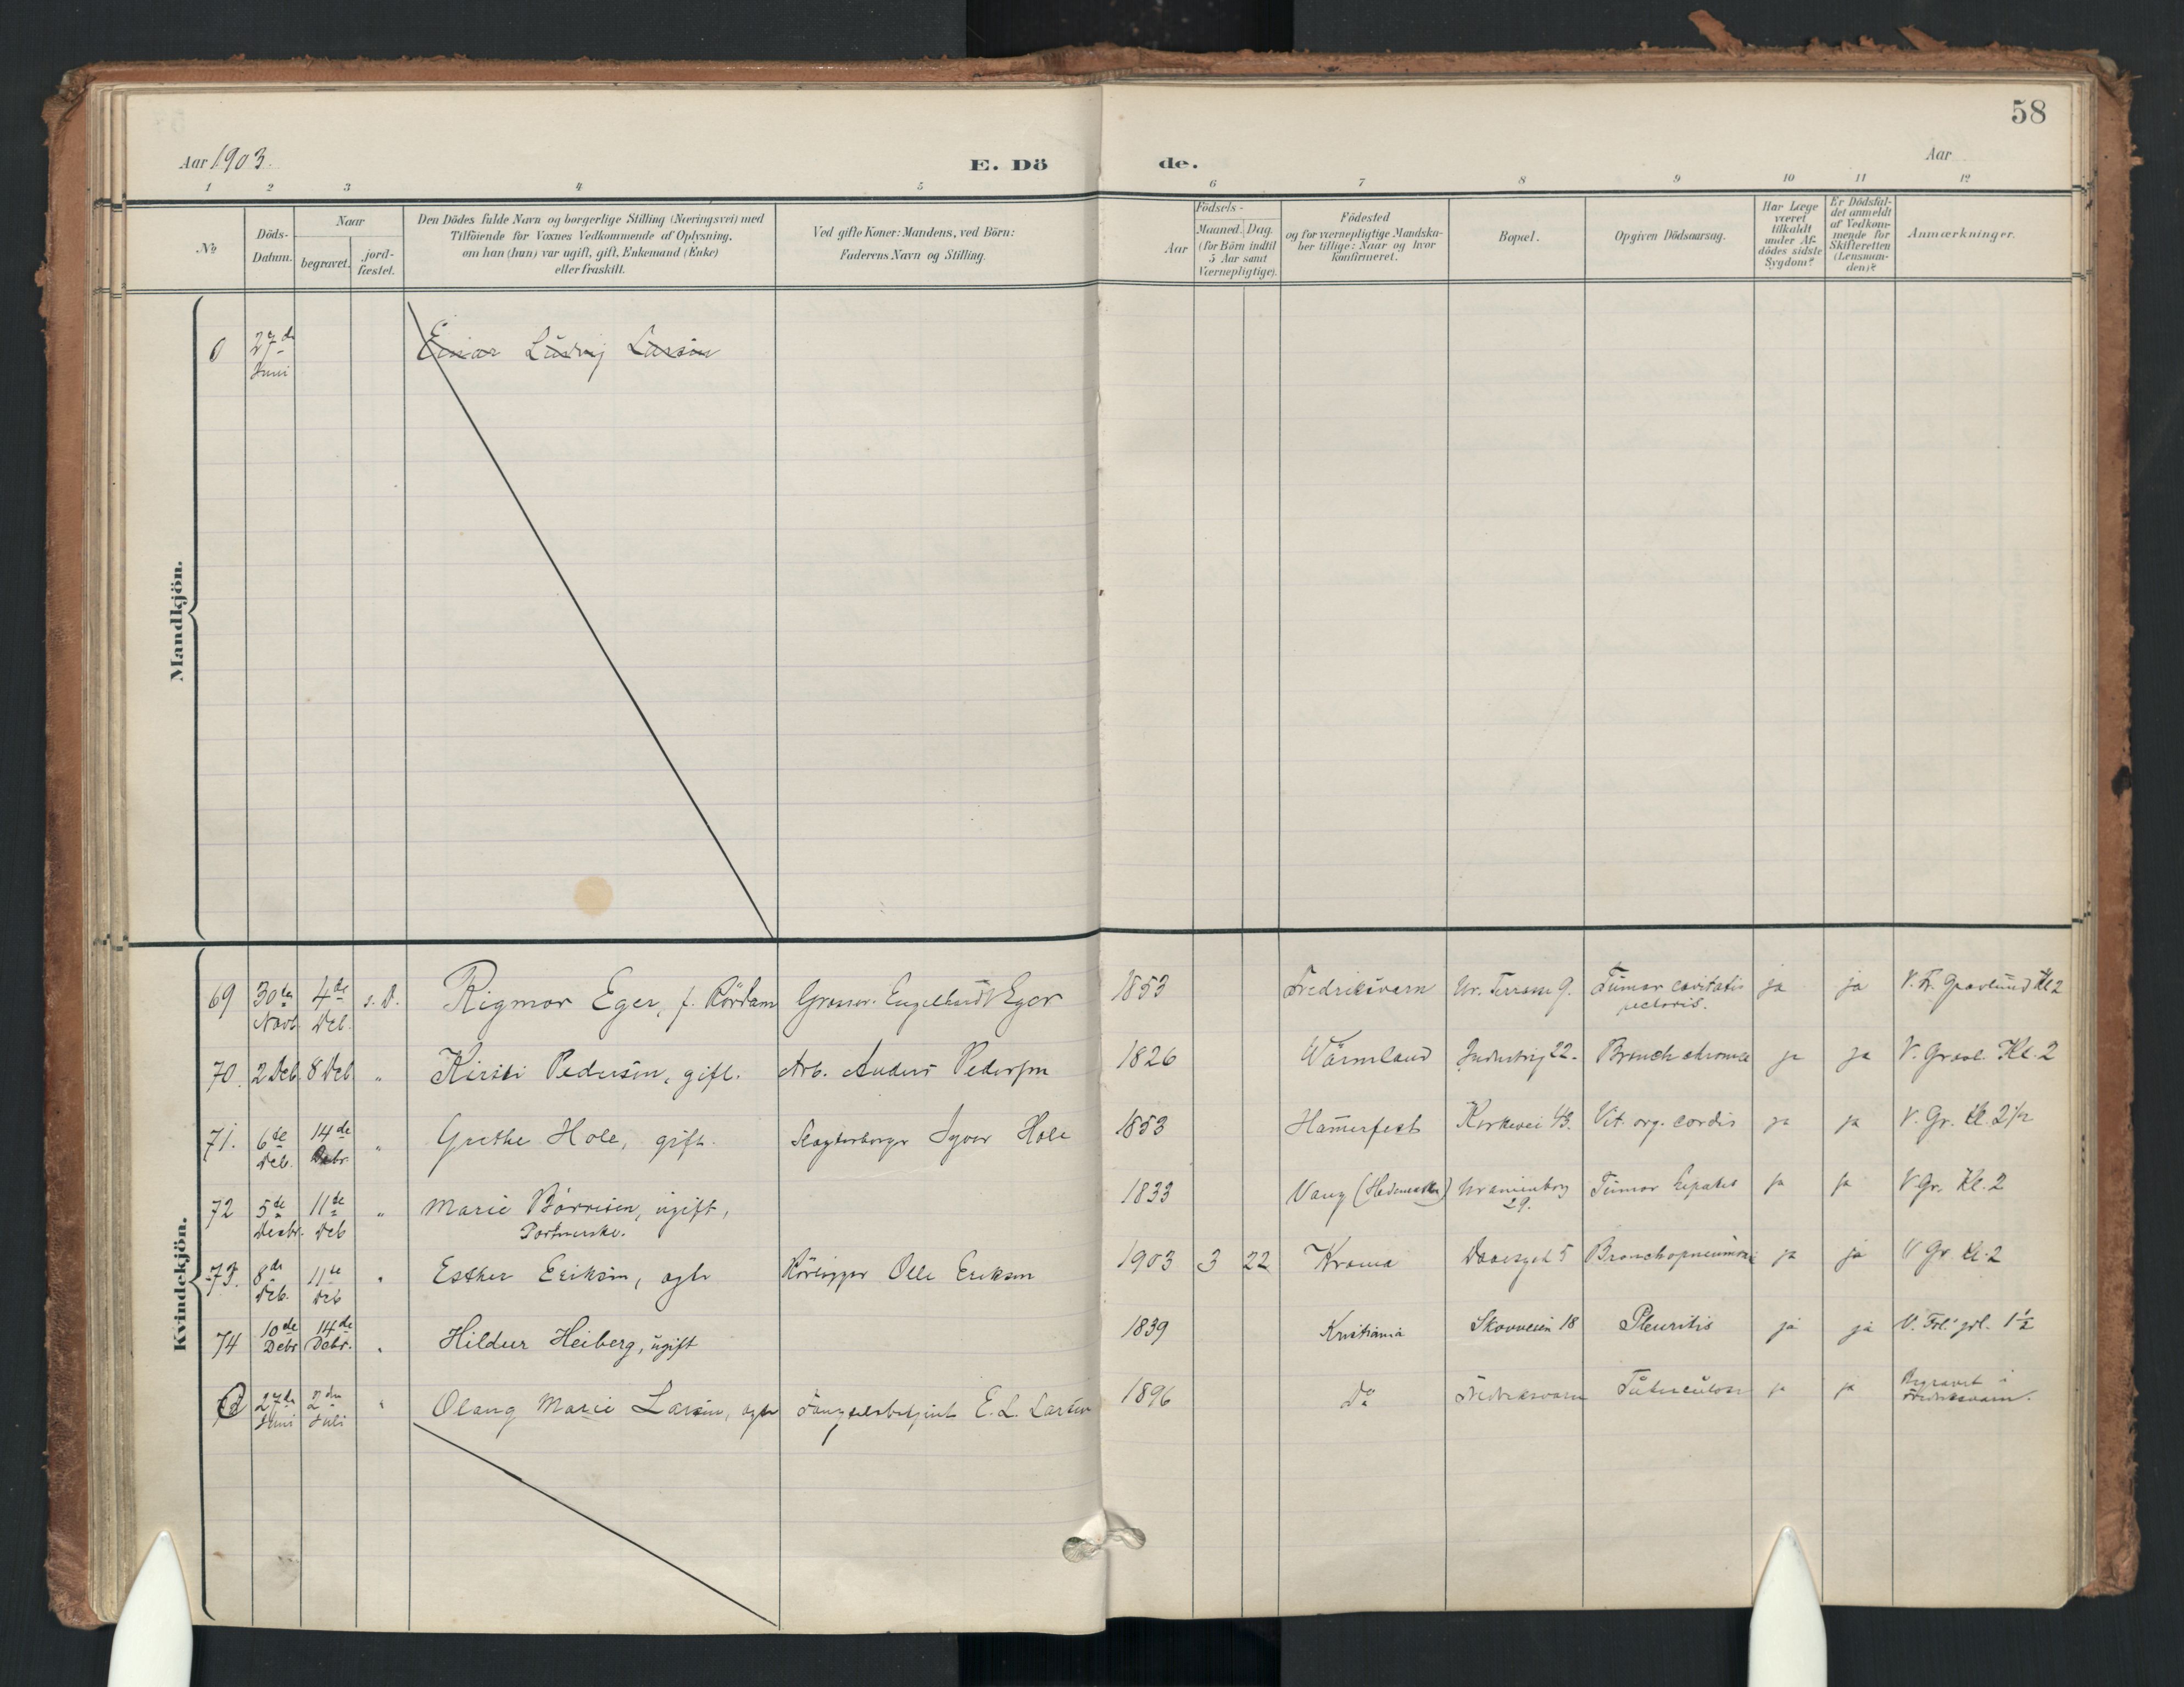 58
Aar 1903.
E. Dö de.
Aar
1 2 3 4 5 6 7 8 9 10 11 12
No
Döds-Datum.
Naar
begravet.
jord-fæstet.
Den Dödes fulde Navn og borgerlige Stilling (Næringsvei) med
Tilföiende for Voxnes Vedkommende af Oplysning,
om han (hun) var ugift, gift, Enkemand (Enke)
eller fraskilt.
Ved gifte Koner: Mandens, ved Börn:
Faderens Navn og Stilling.
Födsels-
Aar
Maaned. Dag.
(for Börn indtil
5 Aar samt
Værnepligtige).
Födested
og for værnepligtige Mandska-
ber tillige: Naar og hvor
konfirmeret.
Bopæl.
Opgiven Dödsaarsag.
Har Læge
været
tilkaldt
under Af-
dödes sidste
Sygdom?
Er Dödsfal-
det anmeldt
af Vedkom-
mende for
Skifteretten
(Lensman-
den)?
Anmærkninger.
Mandkjön.
0 27de Einar Ludvig Larsen
Juni
Kvindekjön.
69 30te 4de s. D. Rigmor Eger, f. Rördam Grosser. Engelbredt Eger 1853 Fredriksværn Ur. Terrasse 9. Tumor cavitatis ja ja V. Fr. Gravlund Kl 2
Novb. Deb. pectoris.
70. 2 Deb 8 Deb " Kirsti Pedersen, gift. Arb. Anders Pedersen 1826 Wärmland Industrig 22. Bronch. chronica ja ja V. Gravl. Kl. 2
71. 6te 14de " Grethe Hole, gift. Iver Hole 1853 Hammerfest Kirkevei 43. Vit. org. cordis ja ja V. Gr. Kl. 2 1/2
Deb. Debr.
72 5te 11te " Marie Börresen, ugift, 1833 Vang (Hedemarken) Uranienborg Tumor hepatis ja ja V Gr. Kl. 2
Decbr. Deb Portnerske. 29.
73. 8de 11te " Esther Eriksen, agte Rörlægger Olle Eriksen 1903 3 22 Krania Daaesgt 5 Bronchopneumoni ja ja V Gr Kl. 2
Deb. Deb
74 10de 14de " Hildur Heiberg, ugift 1839 Kristiania Skovveien 18 Pleuritis ja ja V. Frl. grl. 1 1/2
Debr Debr.
0 27de 2den " Olaug Marie Larsen, agte Fængselsbetjent E. L. Larsen 1896 Do Fredriksværn Tuberculose ja ja Begravet i
Juni Juli Fredriksværn.